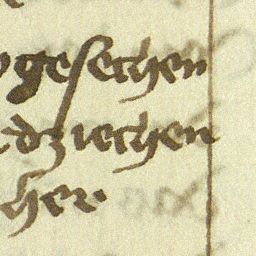 gesechen
dziechen
her